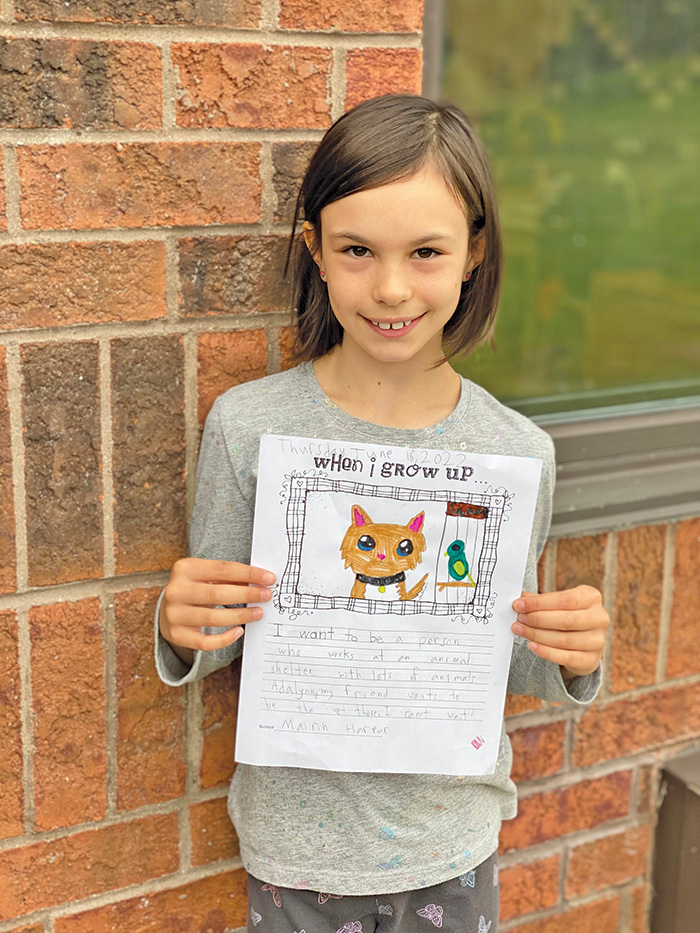 Thursday June 16, 2022
when i grow up...
I want to be a person
who works at an animal
shelter with lots of animals
Adalynn, my friend wants to
be the vet there, I can't wait!
Mairin